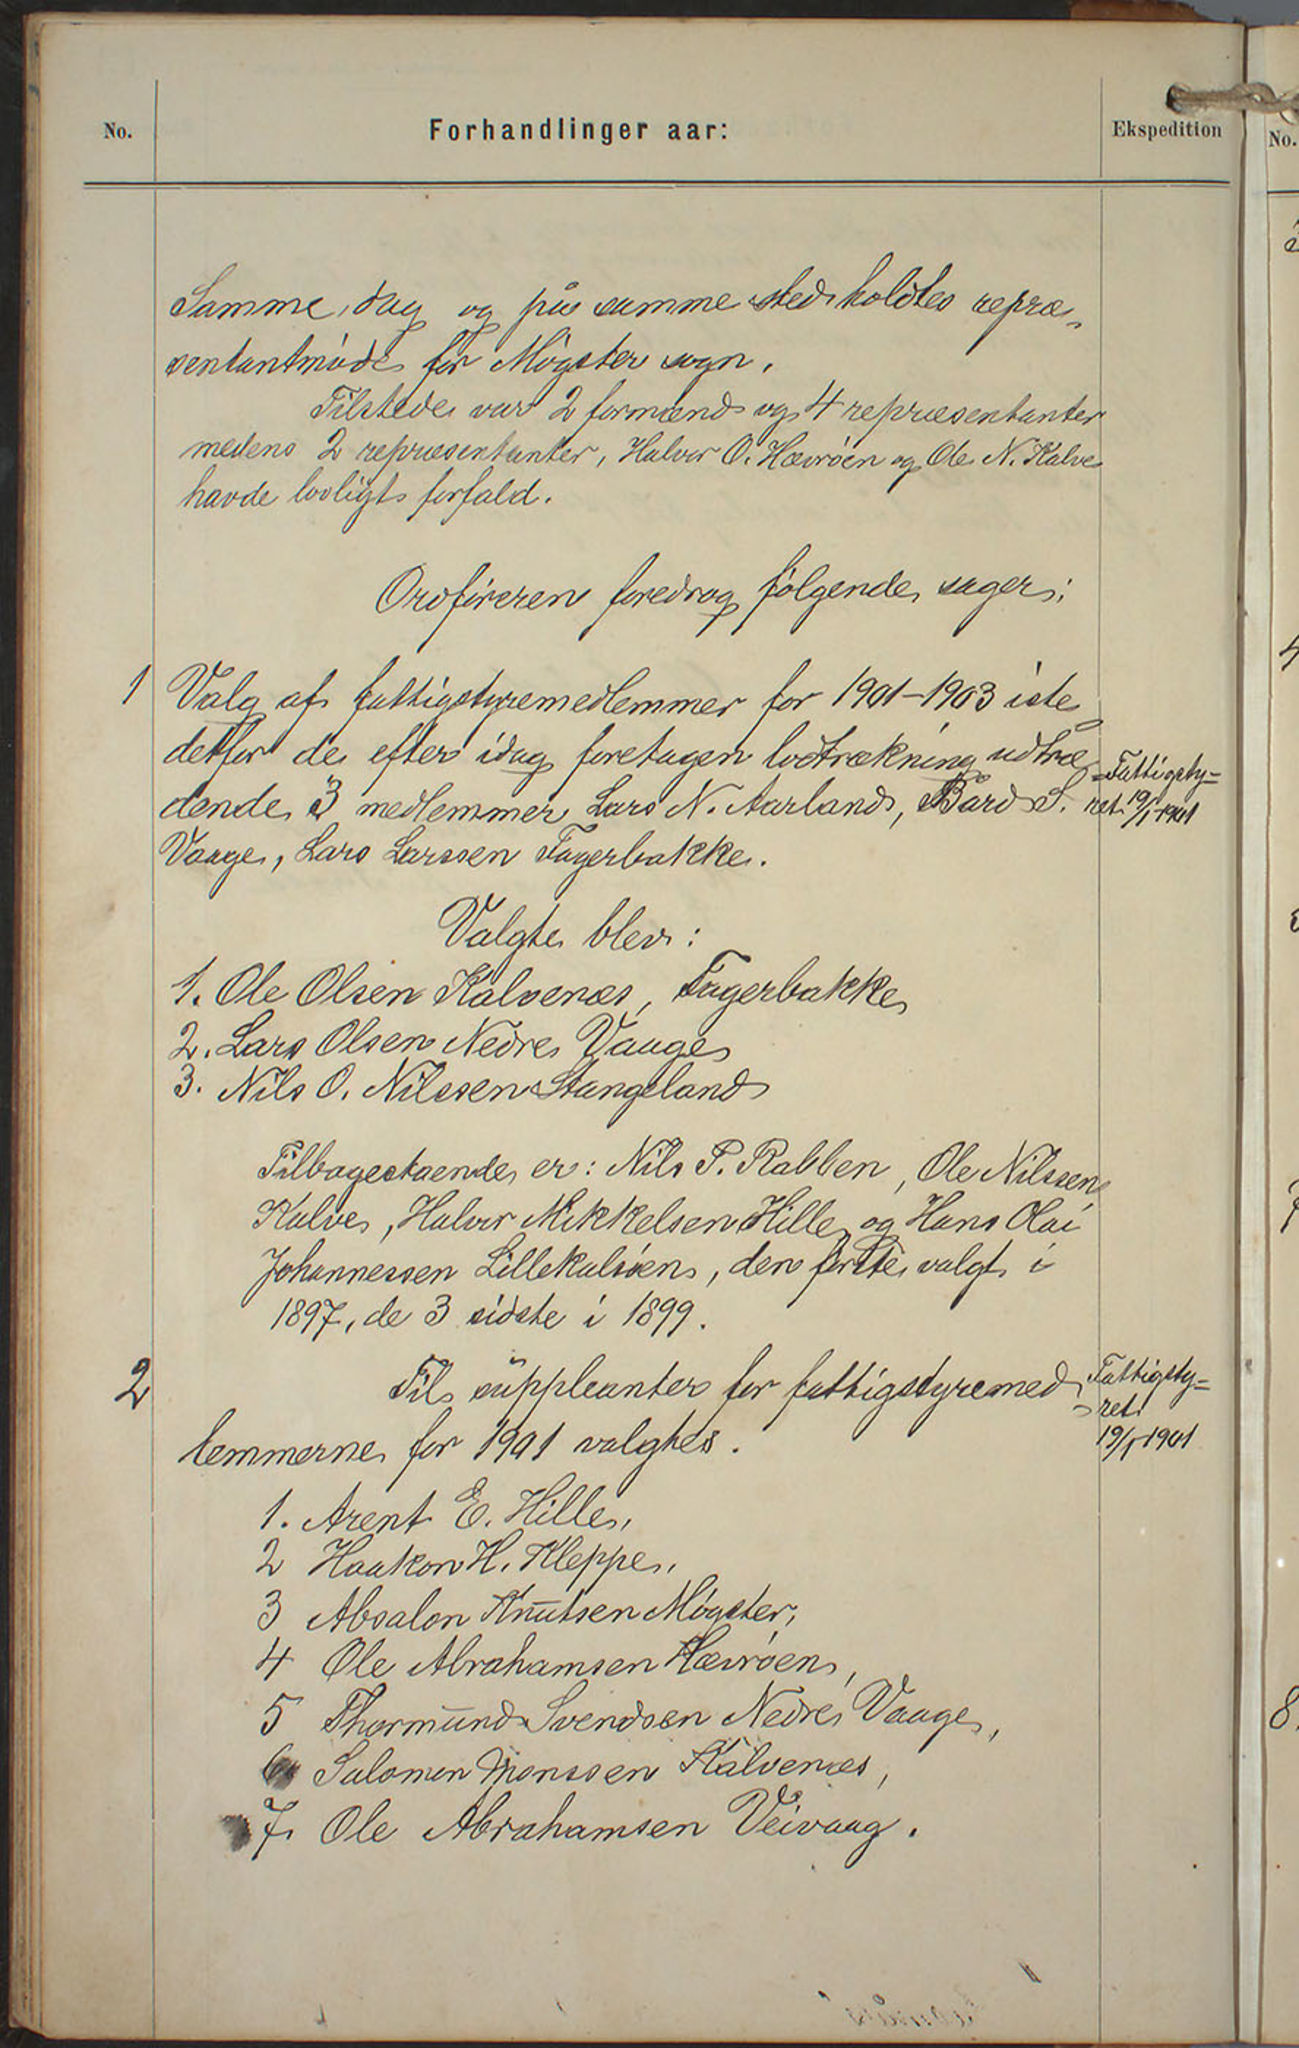 No.
Forhandlinger aar:
Ekspedition
No.
Samme dag og på samme sted holdtes repræ-
sentantmøde for Møgster sogn.
Tilstede var 2 formænd og 4 repræsentanter
medens 2 repræsentanter, Halvor O. Hævrøen og Ole N. Kalve
havde lovligt forfald.
Ordføreren foredrog følgende sager:
1
Valg af fattigstyremedlemmer for 1901-1903 iste
detfor de efter idag foretagen lodtrækning udtræ-
dende 3 medlemmer Lars N. Aarland, Bård S.
Vaage, Lars Larssen Fagerbakke.
Fattigsty-
ret 19/1 1901
Valgte blev:
1. Ole Olsen Kalvenæs, Fagerbakke
2. Lars Olsen Nedre Vaage
3. Nils O. Nilssen Stangeland
Tilbagestaende er: Nils P. Rabben, Ole Nilssen
Kalve, Halvor Mikkelsen Hille og Hans Olai
Johannessen Lillekalsøen, den første valgt i
1897, de 3 sidste i 1899.
2
Til suppleanter for fattigstyremed
lemmerne for 1901 valgtes.
Fattigsty=
ret
19/1 1901
1. Arent E. Hille,
2 Haakon H. Kleppe,
3 Absalon Knutsen Møgster,
4 Ole Abrahamsen Hævrøen,
5 Thormund Svendsen Nedre Vaage,
6 Salomon Monssen Kalvenæs,
7. Ole Abrahamsen Veivaag.
4
8.